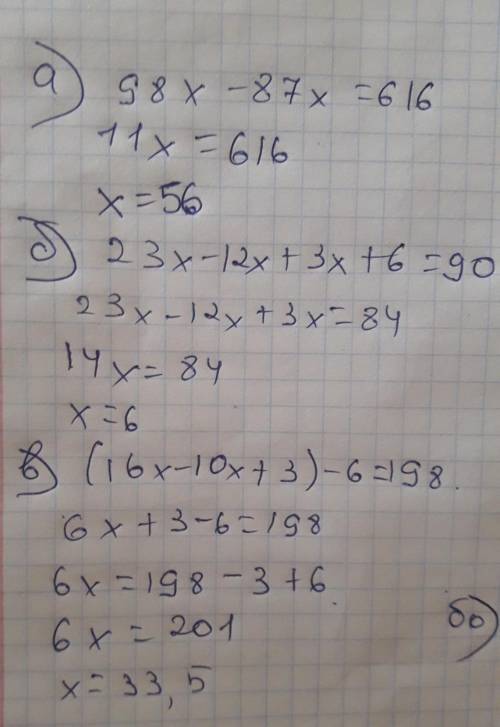 а) 98x - 87x = 616
11x = 616
x = 56
б) 23x - 12x + 3x + 6 = 90
23x - 12x + 3x = 84
14x = 84
x = 6
в) (16x - 10x + 3) - 6 = 198.
6x + 3 - 6 = 198
6x = 198 - 3 + 6
6x = 201
бо)
x = 33,5